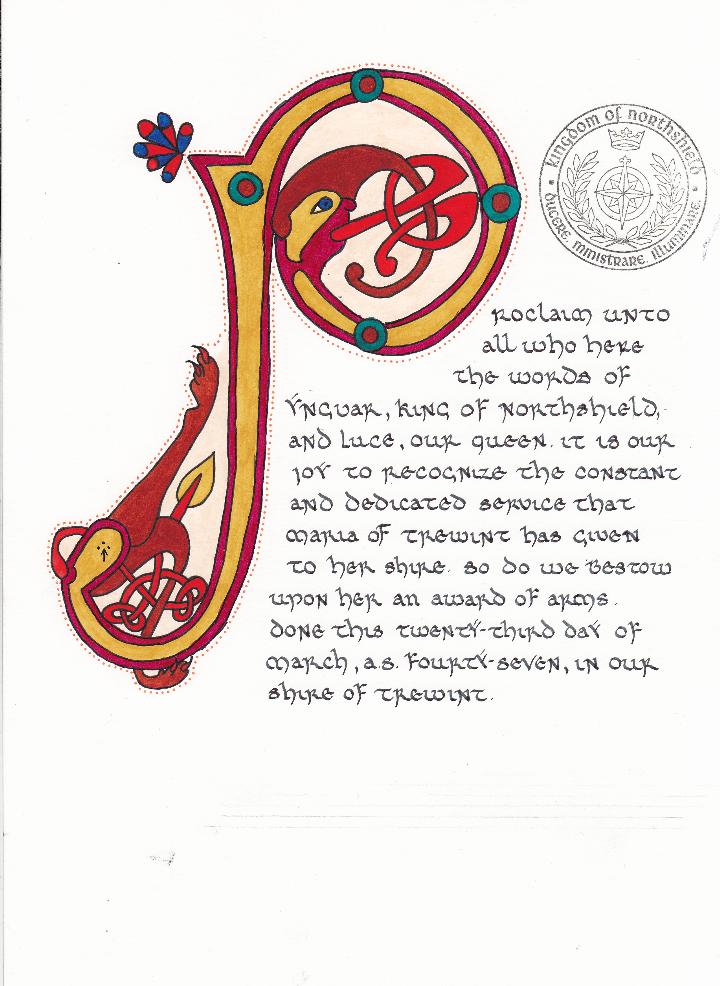 KINGDOM OF NORTHSHIELD
DUCERE, MINISTRARE, ILLUMINARE
PROCLAIM UNTO
ALL WHO HERE
THE WORDS OF
YNGVAR, KING OF NORTHSHIELD,
AND LUCE, OUR QUEEN. IT IS OUR
JOY TO RECOGNIZE THE CONSTANT
AND DEDICATED SERVICE THAT
MARIA OF TREWINT HAS GIVEN
TO HER SHIRE. SO DO WE BESTOW
UPON HER AN AWARD OF ARMS.
DONE THIS TWENTY-THIRD DAY OF
MARCH, A.S. FOURTY-SEVEN, IN OUR
SHIRE OF TREWINT.